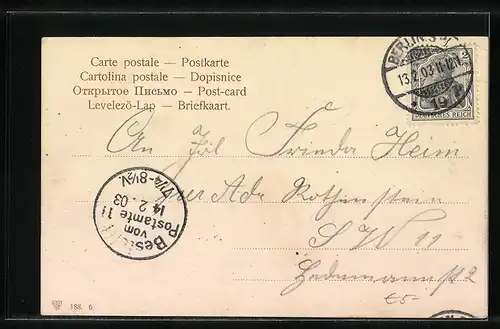 Carte postale — Postkarte
Cartolina postale — Dopisnice
Открытое Письмо — Post-card
Levelezö-Lap — Briefkaart.
BERLIN S.W.
13.2.03 11-12
* 19
DEUTSCHES REICH
An Frl Frieda Heim
Adr Rothenstein
S W 11
Hedemannst 2
Bestellt
vom
Postamte 11
14.2.03
7¼-8½V.
€5-
188. 6.